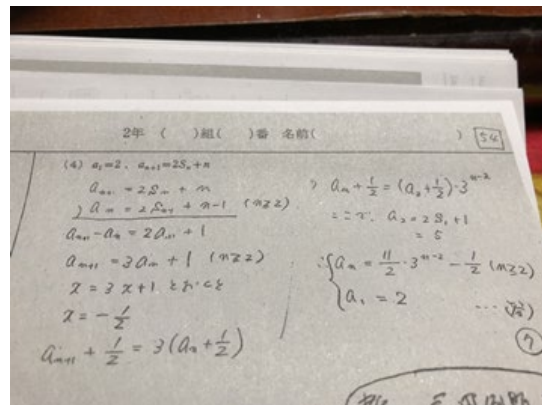 2年 ( )組( )番 名前( ) 54
(4) a₁=2、aₙ₊₁=2Sₙ+n
aₙ₊₁ = 2Sₙ + n
) aₙ = 2Sₙ₋₁ + n-1 (n≧2)
aₙ₊₁-aₙ = 2aₙ + 1
aₙ₊₁ = 3aₙ + 1 (n≧2)
x = 3x+1 とおくと
x = -1/2
aₙ₊₁ + 1/2 = 3(aₙ+1/2)
aₙ+1/2 = (a₂+1/2)・3ⁿ⁻²
ここで、a₂=2S₁+1
= 5
∴{aₙ = 11/2・3ⁿ⁻² - 1/2 (n≧2)
a₁ = 2